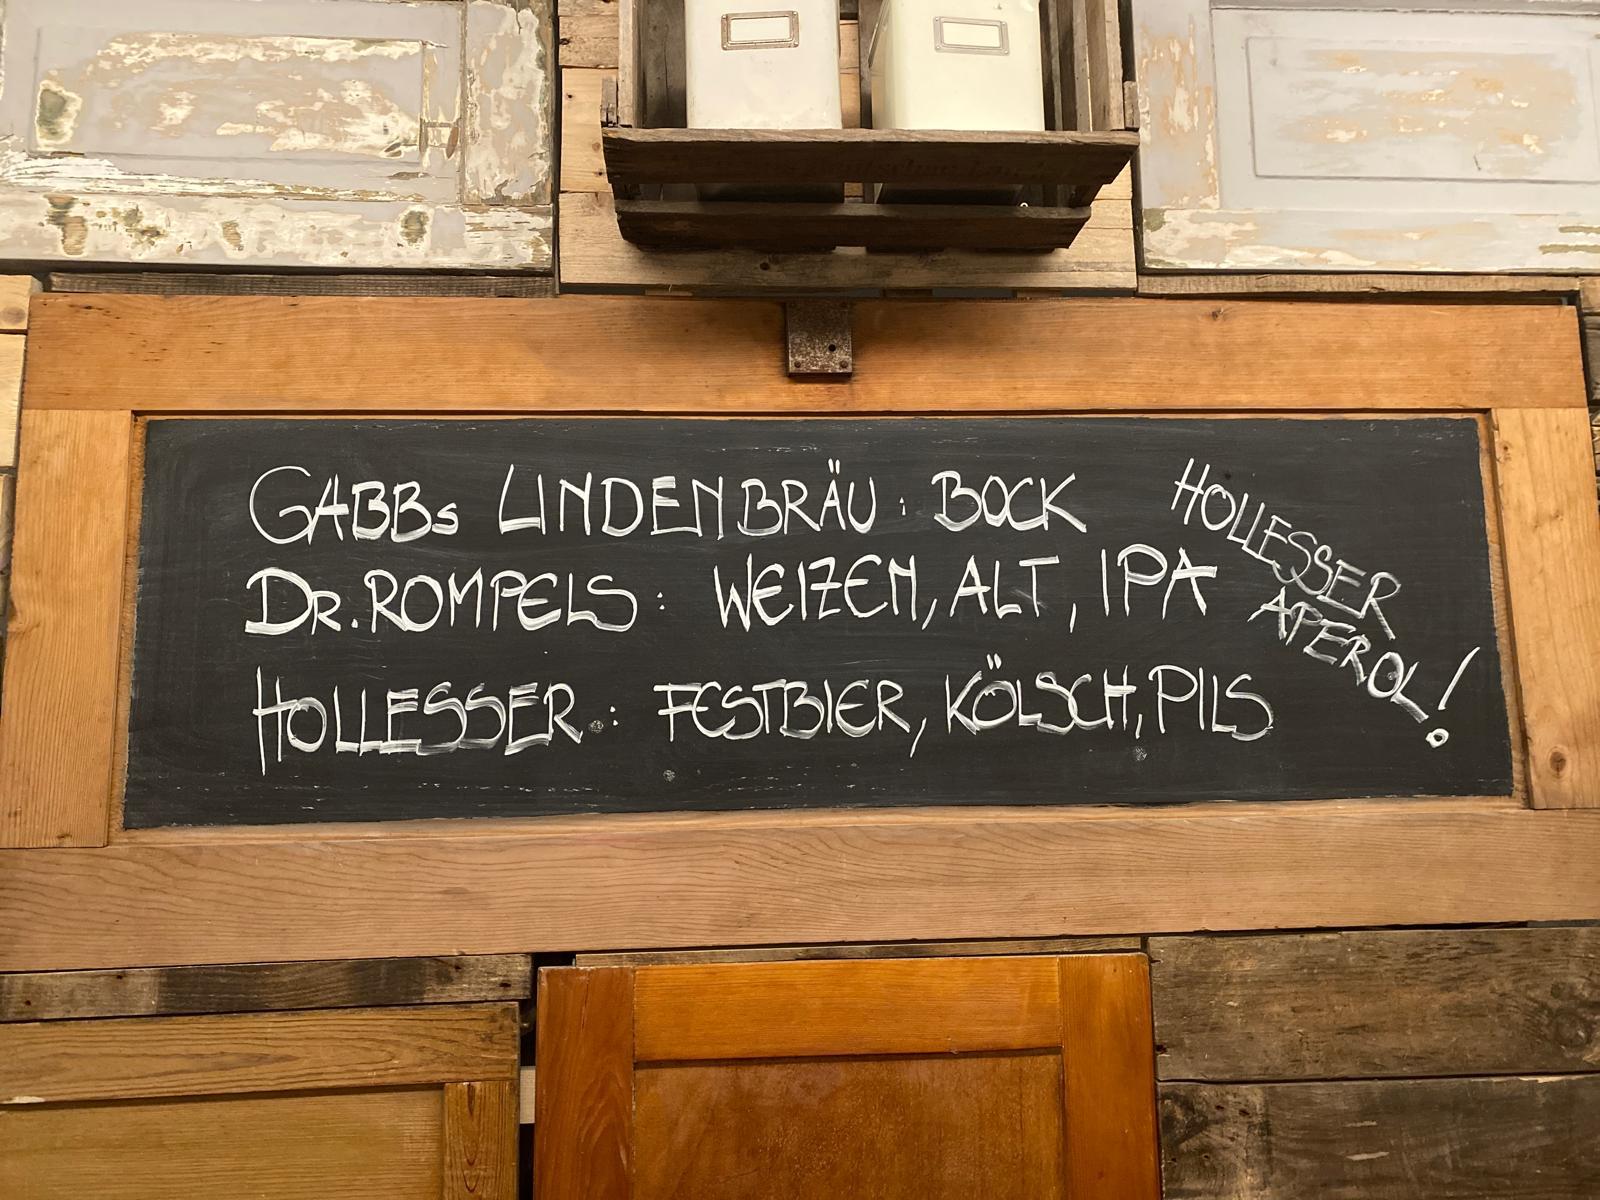 GABBs LINDENBRÄU: BOCK
DR. ROMPELS: WEIZEN, ALT, IPA
HOLLESSER: FESTBIER, KÖLSCH, PILS
HOLLESSER
APEROL!